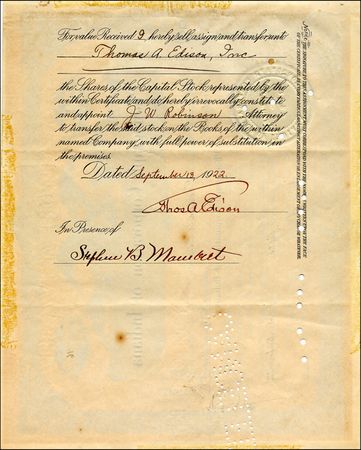 For value Received I hereby sell, assign and transfer unto
Thomas A. Edison, Inc
the Shares of the Capital Stock represented by the
within Certificate and do hereby irrevocably constitute
and appoint J. W. Robinson Attorney
to transfer the said stock on the Books of the within
named Company with full power of substitution in
the premises.
Dated September 13, 1922
Thos A Edison
In Presence of
Stephen B. Mambert